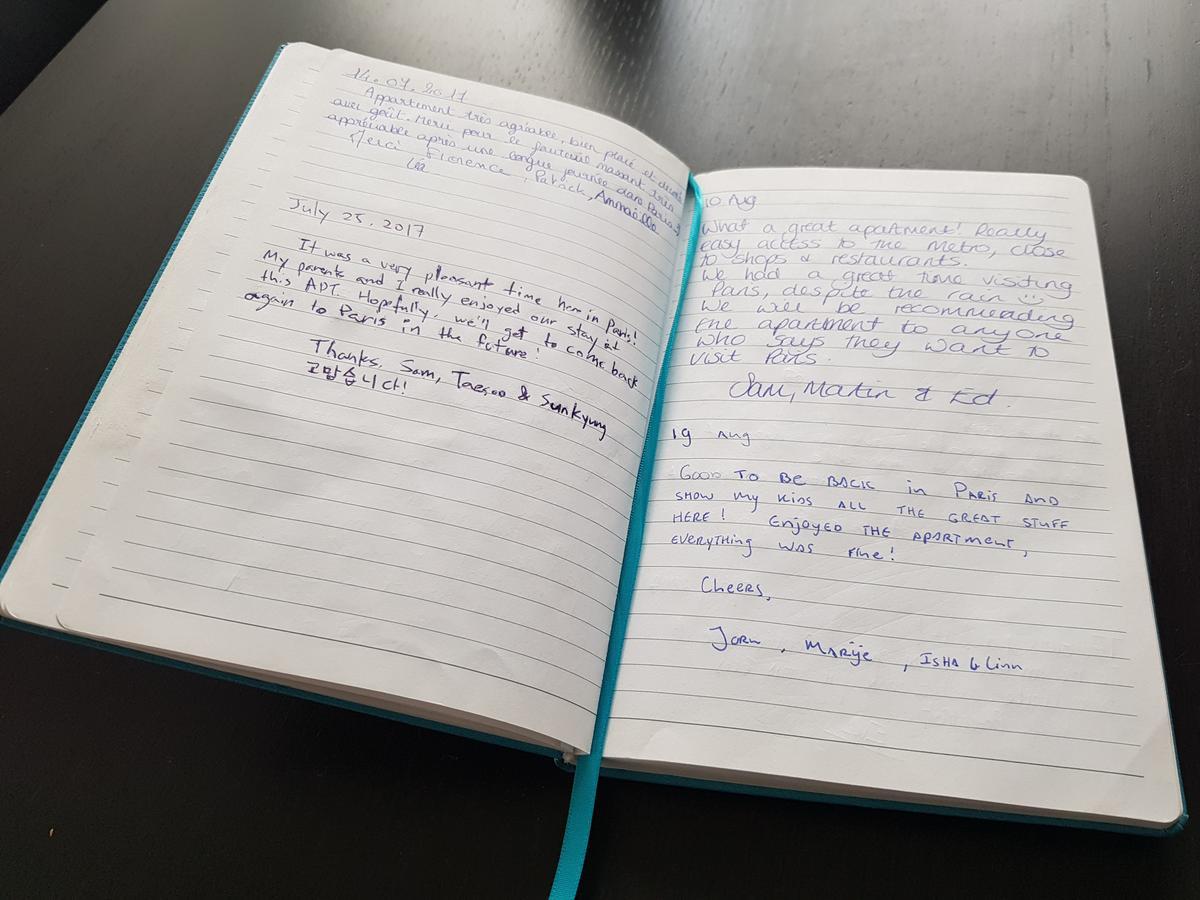 14.07.2017
Appartement très agréable, bien placé et décoré
avec goût. Merci pour le fauteuil massant très
appréciable après une longue journée dans Paris
Merci Florence, Patrick,
Léa
July 25. 2017
It was a very pleasant time here in Paris!
My parents and I really enjoyed our stay at
this APT. Hopefully, we'll get to come back
again to Paris in the future!
Thanks, Som, Taesoo & Sunkyung
고맙습니다!
10 Aug
What a great apartment! Really
easy access to the metro, close
to shops & restaurants.
We had a great time visiting
Paris, despite the rain ☺
We will be recommending
the apartment to anyone
who says they want to
visit Paris.
Sam, Martin & Ed.
19 Aug
GOOD TO BE BACK in PARIS AND
SHOW my KIDS ALL THE GREAT STUFF
HERE! Enjoyed THE APARTMENT,
EVERYTHING WAS FINE!
Cheers,
JORN, MARIJE, ISHA & Linn